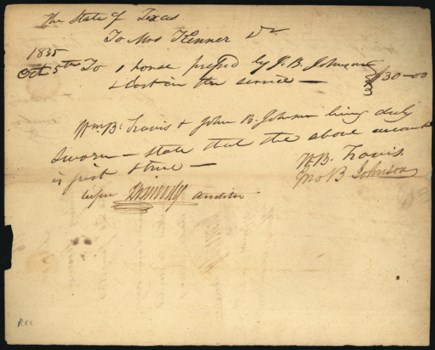 The State of Texas
To Mrs Kenner Dr
1835
Oct 5th To 1 horse pressed by J. B. Johnson
& lost in the service — $30-00
Wm B. Travis & John B. Johnson being duly
sworn — state that the above account
is just & true —
W. B. Travis
Jno B Johnson
before auditor